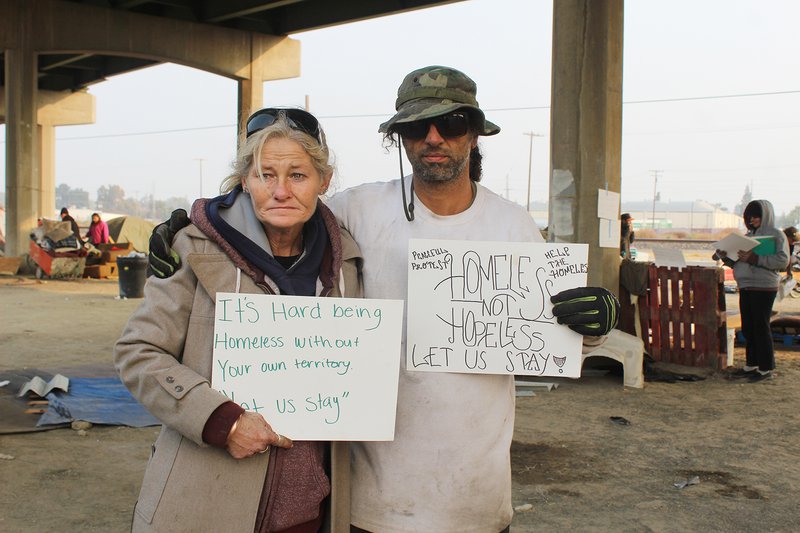 It's Hard being
Homeless without
Your own territory.
"let us stay"
PEACEFUL
PROTEST
HELP
THE
HOMELESS
HOMELESS
NOT
HOPELESS
LET US STAY!